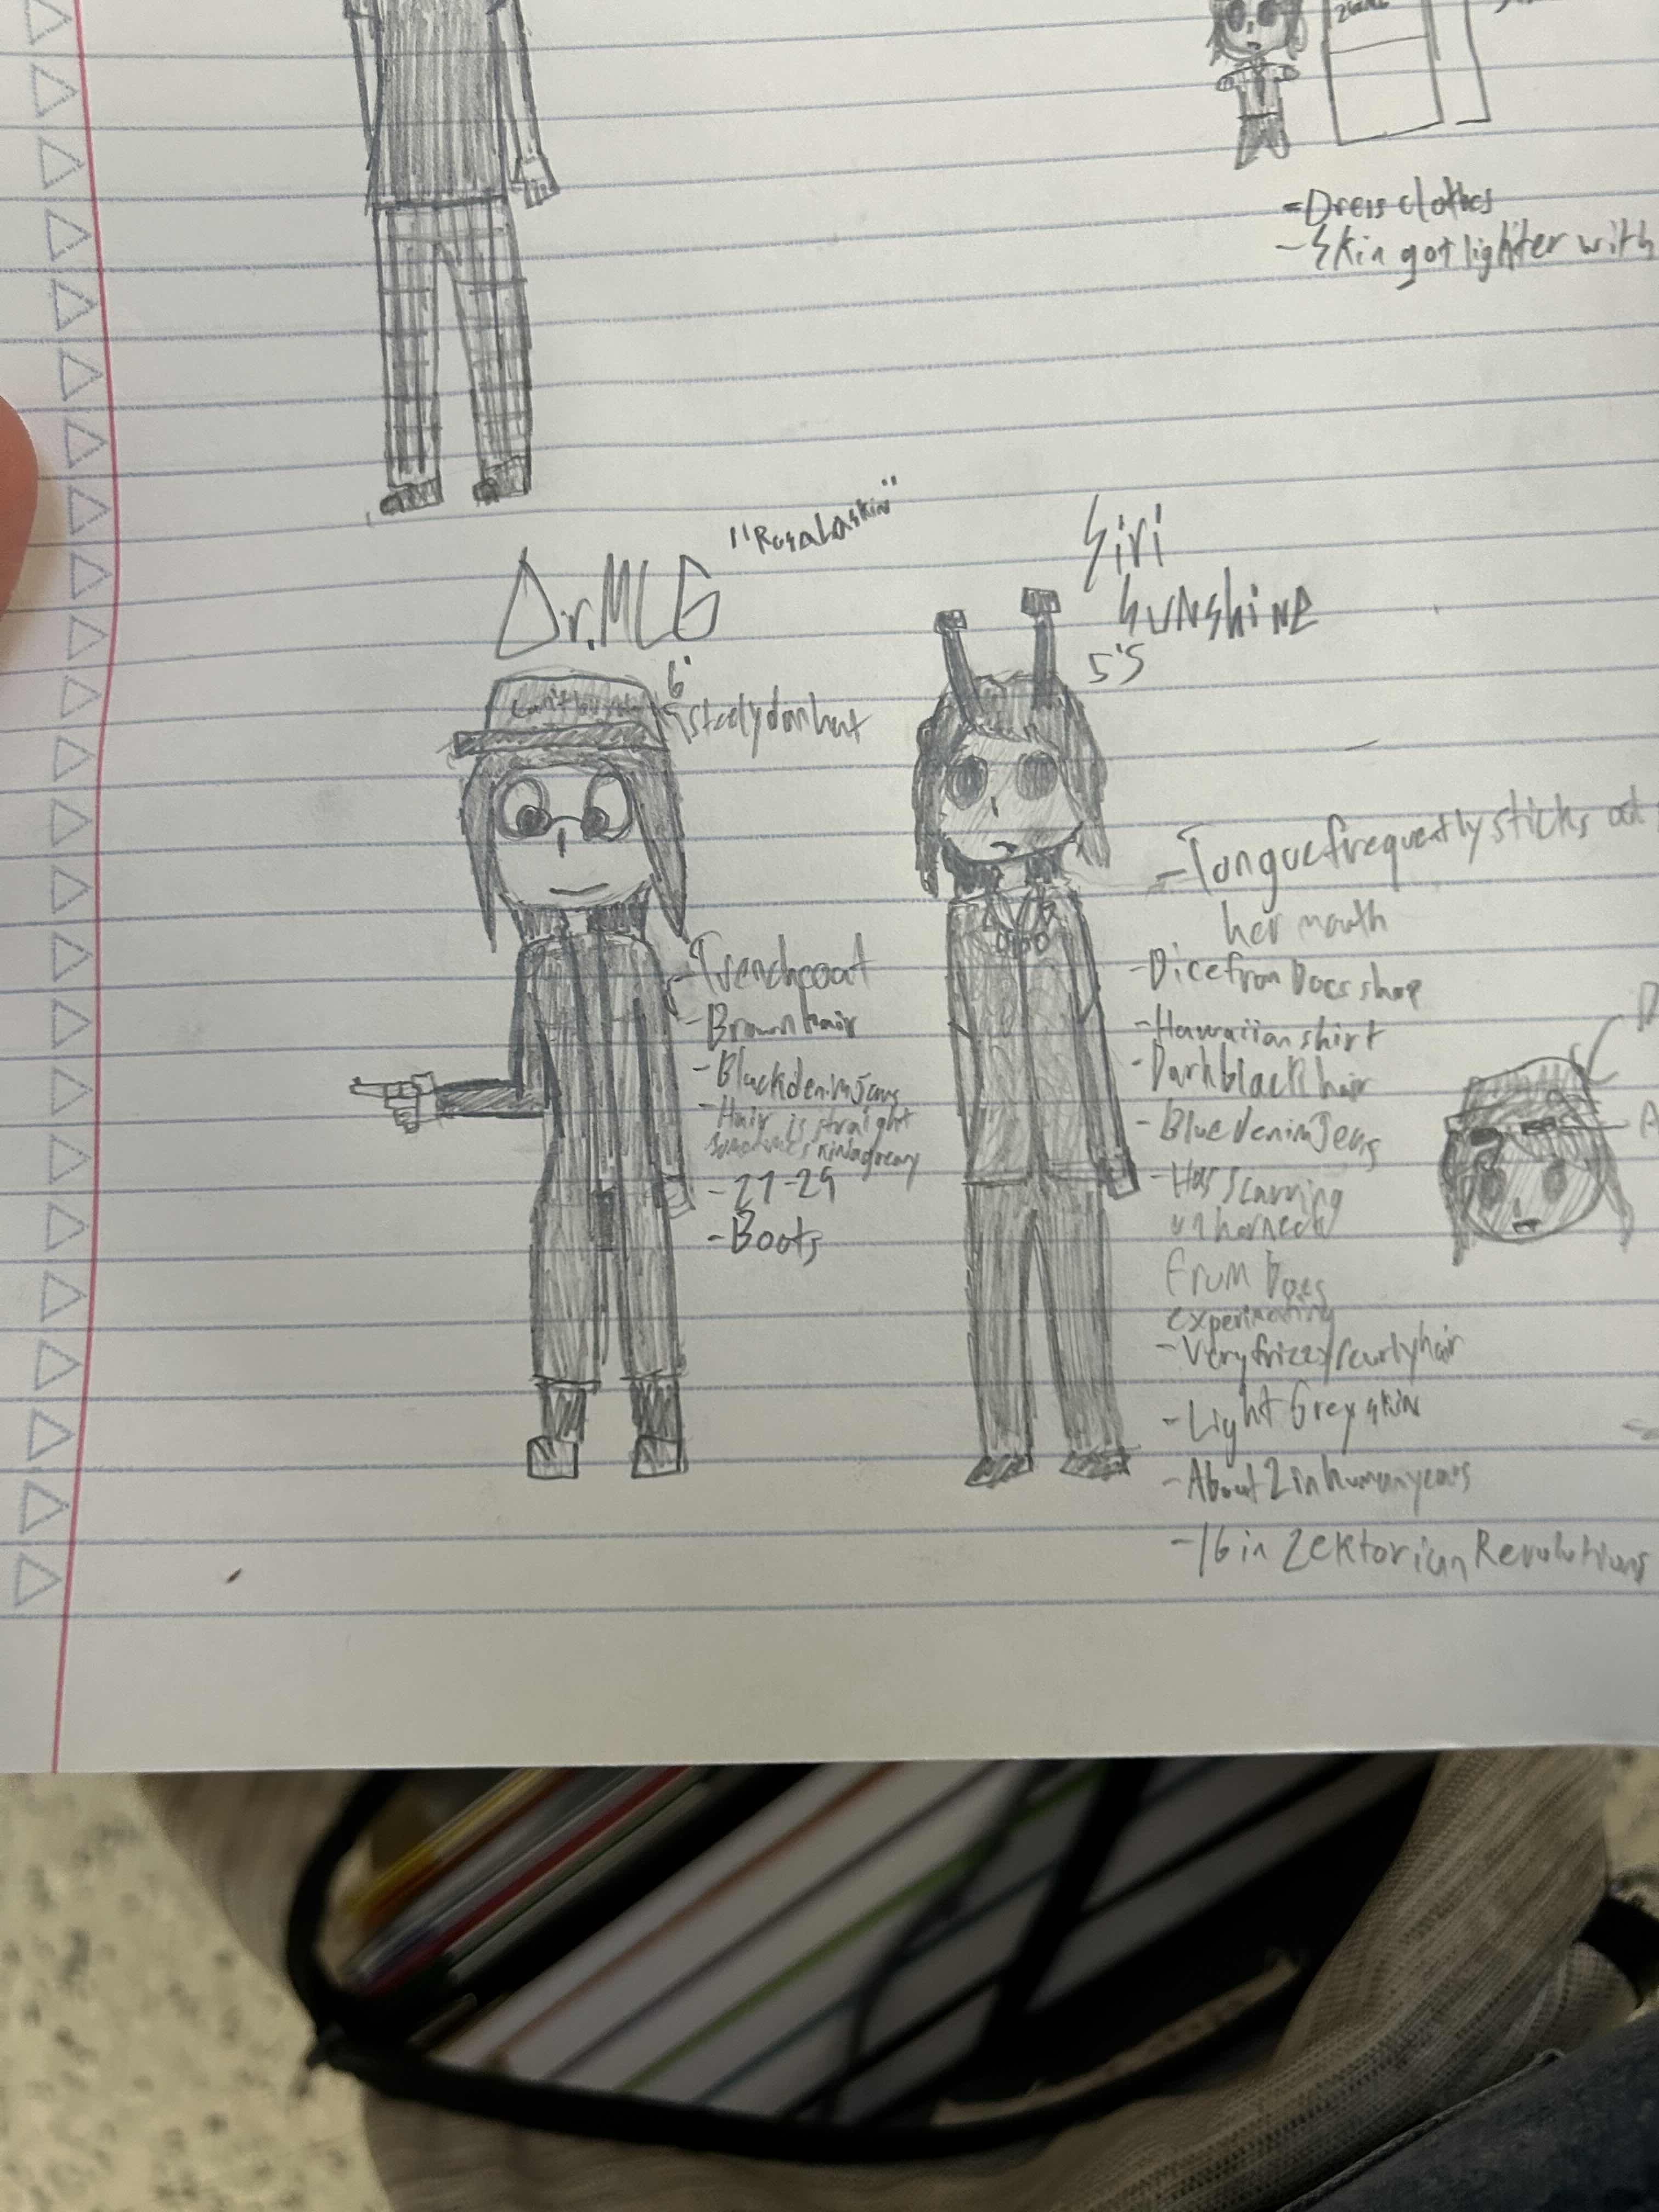 -Dress clothes
-Skin got lighter with
Dr.MLG
"RosaLaskin"
6'
steelydan hat
Can't buy
-Trenchcoat
-Brown hair
-Black denim Jeans
-Hair is straight
sometimes kinda greasy
-27-29
-Boots
Siri
Sunshine
5'5
-Tongue frequently sticks out
her mouth
-Dice from Docs shop
-Hawaiian shirt
-Dark black hair
-Blue denim Jeans
-Has scarring
on her neck
from Docs
experimenting
-Very frizzy/curly hair
-Light Grey skin
-About 2 in human years
-16 in Zektorian Revolutions